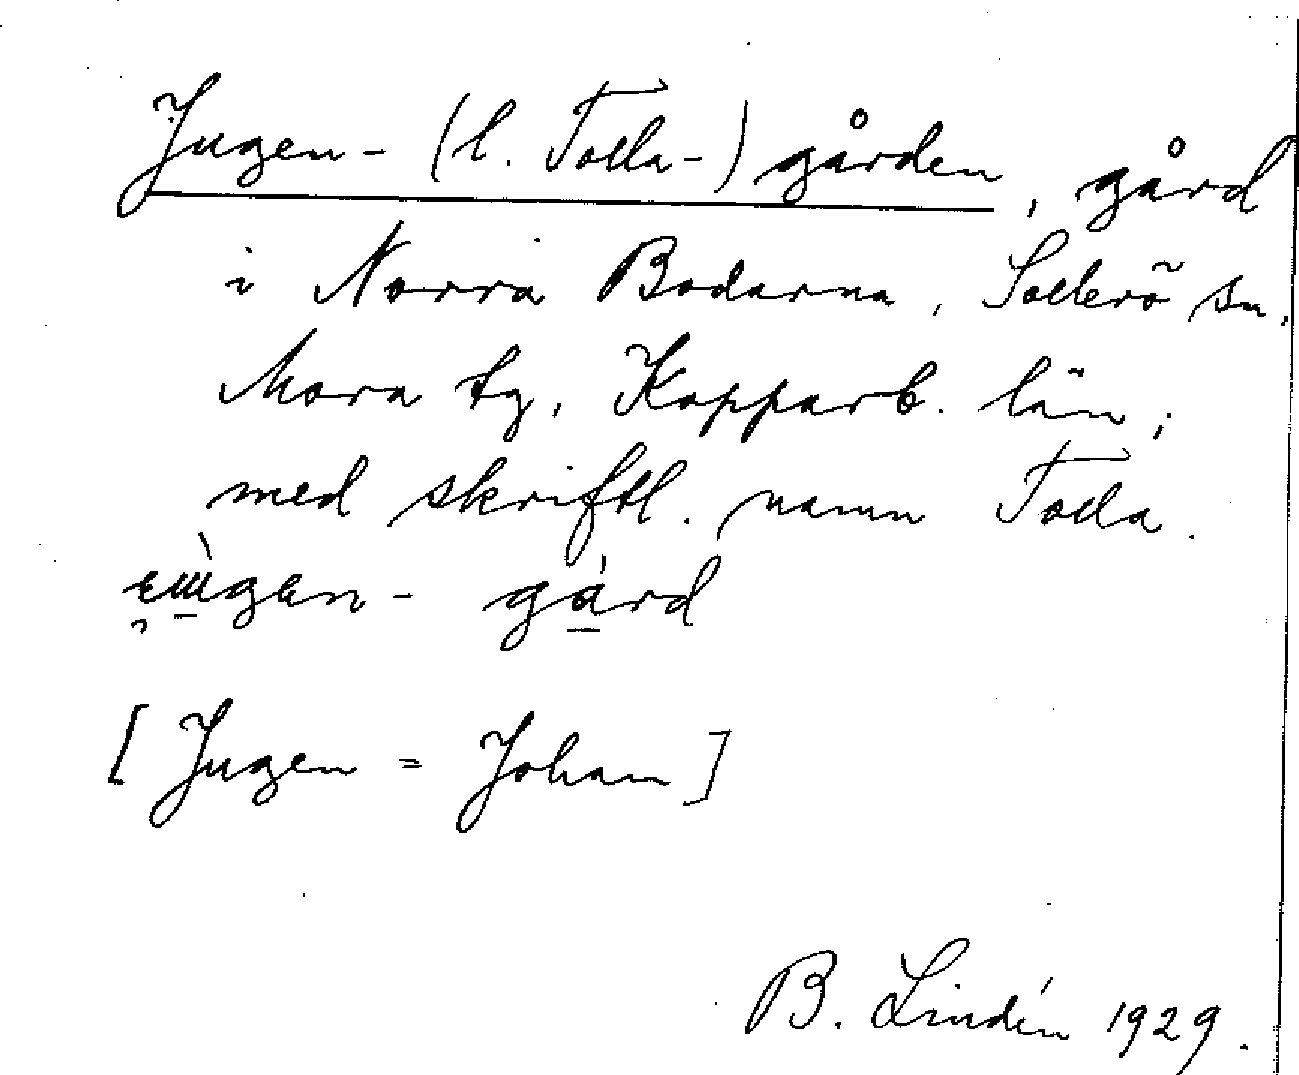 Jugen- (l. Tolla-) gården, gård
i Norra Bodarna, Sollerö sn.
Mora tg, Kopparb. län;
med skriftl. namn Tolla.
gård
[Jugen = Johan]
B. Lindén 1929.